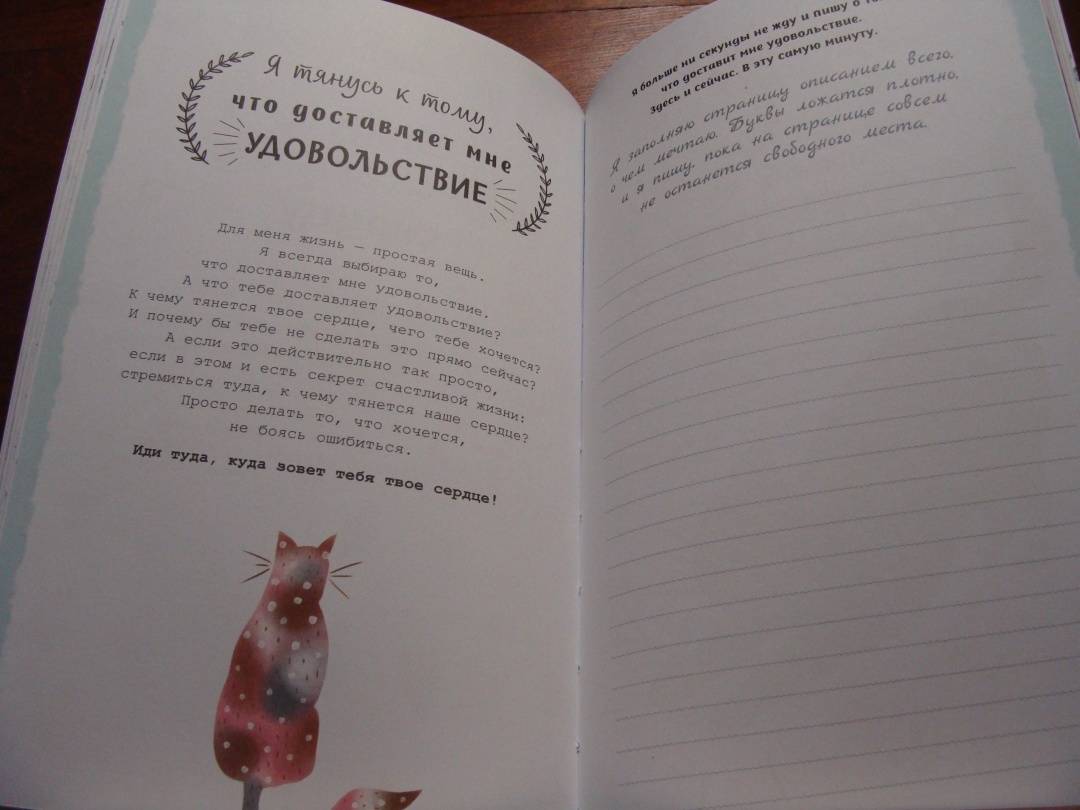 Я тянусь к тому,
что доставляет мне
УДОВОЛЬСТВИЕ
Для меня жизнь – простая вещь.
Я всегда выбираю то,
что доставляет мне удовольствие.
А что тебе доставляет удовольствие?
К чему тянется твое сердце, чего тебе хочется?
И почему бы тебе не сделать это прямо сейчас?
А если это действительно так просто,
если в этом и есть секрет счастливой жизни:
стремиться туда, к чему тянется наше сердце?
Просто делать то, что хочется,
не боясь ошибиться.
Иди туда, куда зовет тебя твое сердце!
Я больше ни секунды не жду и пишу о
что доставит мне удовольствие.
Здесь и сейчас. В эту самую минуту.
Я заполняю страницу описанием всего,
о чем мечтаю. Буквы ложатся плотно,
и я пишу, пока на странице совсем
не останется свободного места.